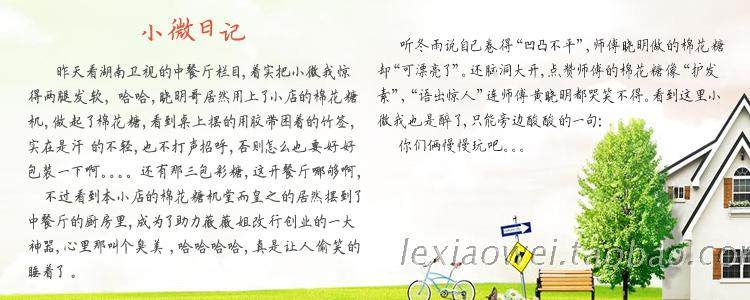 小微日记
昨天看湖南卫视的中餐厅栏目,着实把小微我惊
得两腿发软,哈哈,晓明哥居然用上了小店的棉花糖
机,做起了棉花糖,看到桌上摆的用胶带困着的竹签,
实在是汗 的不轻,也不打声招呼,否则怎么也要好好
包装一下啊。。。。还有那三包彩糖,这开餐厅哪够啊,
不过看到本小店的棉花糖机堂而皇之的居然摆到了
中餐厅的厨房里,成为了助力薇薇姐改行创业的一大
神器,心里那叫个臭美,哈哈哈哈,真是让人偷笑的
睡着了。
听冬雨说自己卷得“凹凸不平”,师傅晓明做的棉花糖
却“可漂亮了”。还脑洞大开,点赞师傅的棉花糖像“护发
素”,“语出惊人”连师傅黄晓明都哭笑不得。看到这里小
微我也是醉了,只能旁边酸酸的一句:
你们俩慢慢玩吧。。。
lexiaowei.taobao.com